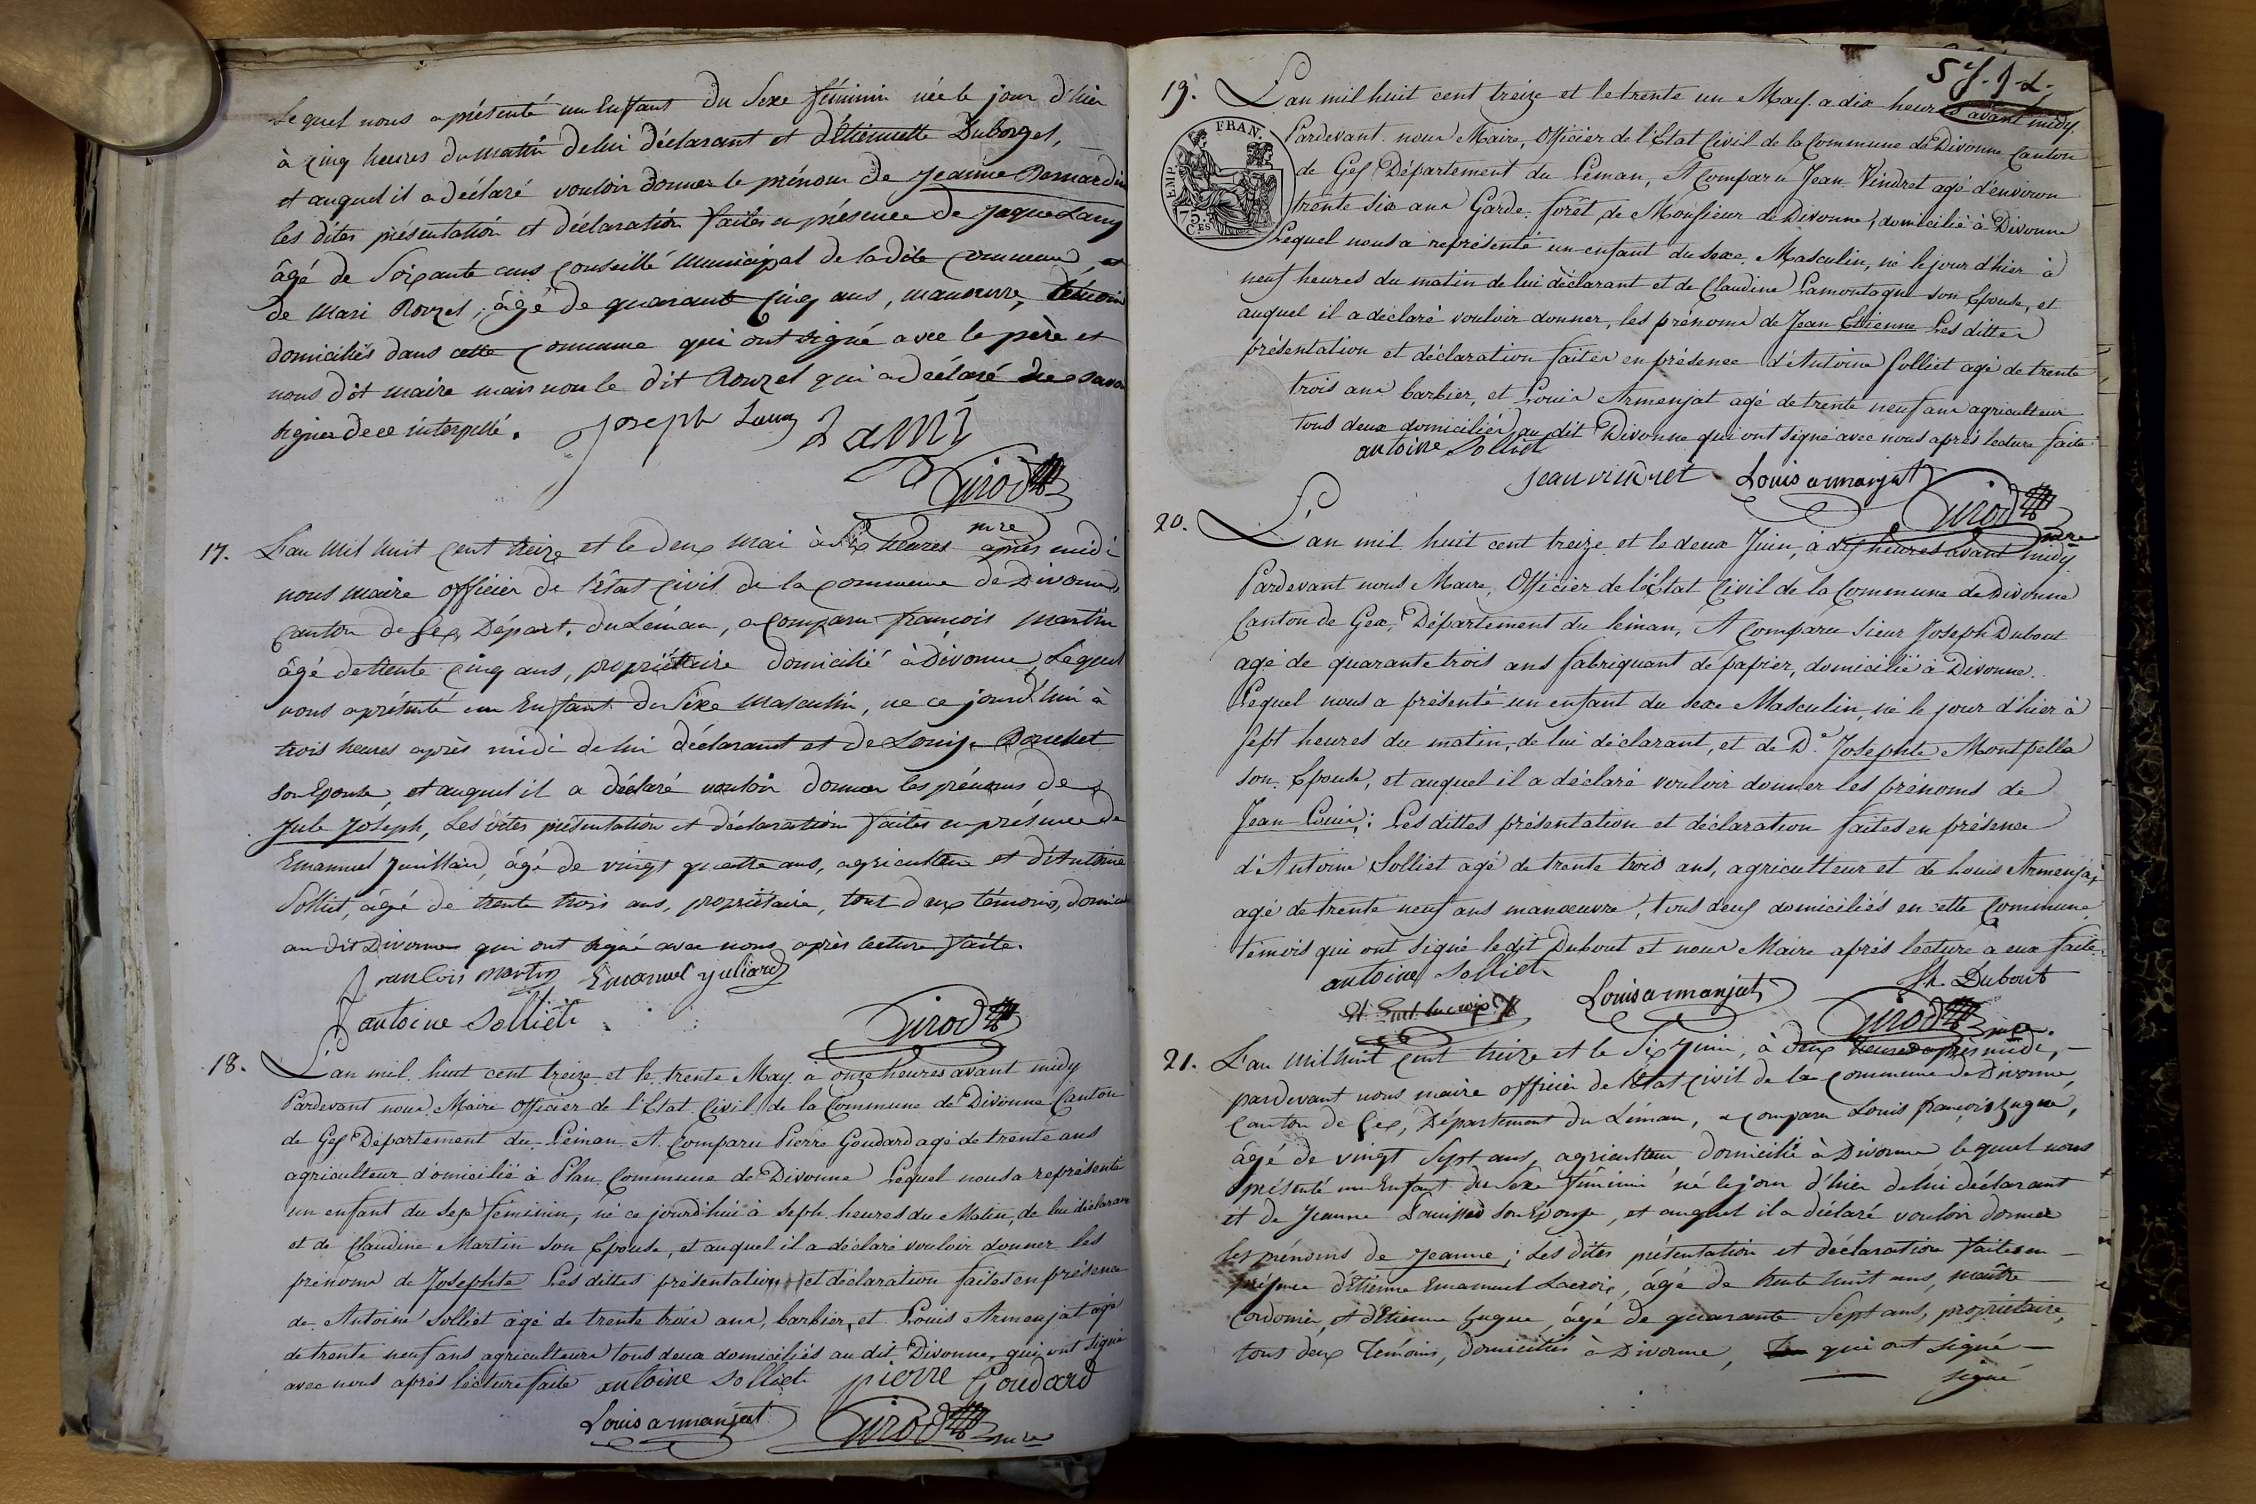 Lequel nous a présenté un Enfant du Sexe féminin née le jour d'hier
à cinq heures du matin de lui déclarant et d'étiennette Duborget,
et auquel il a déclaré vouloir donner le prénom de Jeanne Bernardin
les dites présentation et déclaration faites en présence de Jaque Lamy
âgé de Soixante ans Conseillé municipal de la dite commune, et
de Mari Rouzet, âgé de quarante cinq ans, manœuvre, témoins
domiciliés dans cette commune qui ont signé avec le père et
nous dit maire mais non le dit Rouzet qui a déclaré ne savoir
signer de ce interpellé.
Joseph Lamy Lami
Girod
mre
17. L'an Mil huit cent treize et le deux mai à six heures après midi
nous maire officier de l'état civil de la commune de Divonne,
canton de Gex, Départ. du Léman, a comparu françois Martin
âgé de trente cinq ans, propriétaire domicilié à Divonne, Lequel
nous a présenté un Enfant du Sexe Masculin, né ce jourd'hui à
trois heures après midi de lui déclarant et de Louise Bouchet
son Epouse, et auquel il a déclaré vouloir donner les prénoms de
Jule Joseph, Les dites présentation et déclaration faites en présence de
Emanuel Juillard, âgé de vingt quatre ans, agriculteur et d'Antoine
Solliet, âgé de trente trois ans, propriétaire, tout deux témoins, domicil
au dit Divonne qui ont signé avec nous après lecture faite.
francois martin Emanuel juliard
antoine Solliet
Girod
18. L'an mil huit cent treize et le trente May à onze heures avant midy
Pardevant nous Maire officier de l'Etat Civil de la Commune de Divonne Canton
de Gex Département du Léman, A Comparu Pierre Goudard agé de trente ans
agriculteur domicilié à Plan Commune de Divonne Lequel nous a représenté
un enfant du sexe féminin, né ce jourd'hui à seph heures du Matin, de lui déclarant
et de Claudine Martin son Epouse, et auquel il a déclaré vouloir donner les
prénoms de Josephte Les dittes présentation et déclaration faites en présence
de Antoine Solliet agé de trente trois ans, barbier, et Louis Armenjat agé
de trente neuf ans agriculteur tous deux domiciliés au dit Divonne, qui ont signé
avec nous après lecture faite antoine Solliet pierre Goudard
Louis armanjat Girod mre
19. L'an mil huit cent treize et le trente un May a dix heures avant midy
Pardevant nous Maire, Officier de l'Etat Civil de la Commune de Divonne Canton
FRAN.
TEMP.
75.
CES
de Gex Département du Léman, A Comparu Jean Vindret agé d'environ
trente six ans Garde forêt de Monsieur de Divonne, domicilié à Divonne
Lequel nous a représenté un enfant du sexe Masculin, né le jour d'hier à
neuf heures du matin de lui déclarant et de Claudine Lamontagne son Epouse, et
auquel il a declaré vouloir donner, les prénoms de Jean Etienne Les dittes
présentation et déclaration faites en présence d'Antoine Solliet agé de trente
trois ans barbier, et Louis Armenjat agé de trente neuf ans agriculteur
tous deux domiciliés au dit Divonne qui ont signé avec nous après lecture faite
antoine Solliet
jean vindret Louis armanjat
Girod mre
20. L'an mil huit cent treize et le deux Juin, à dix heures avant midy
Pardevant nous Maire, Officier de l'Etat Civil de la Commune de Divonne
Canton de Gex, Département du leman, A Comparu Sieur Joseph Dubout
agé de quarante trois ans fabriquant de papier, domicilié à Divonne.
Lequel nous a présenté un enfant du sexe Masculin, né le jour d'hier à
sept heures du matin, de lui déclarant, et de De. Josephte Montpella
son Epouse, et auquel il a déclaré vouloir donner les prénoms de
Jean Louis; Les dittes présentation et déclaration faites en présence
d'Antoine Solliet agé de trente trois ans, agriculteur et de Louis Armenjat
agé de trente neuf ans manoeuvre, tous deux domiciliés en cette Commune
témois qui ont signé le dit Dubout et nous Maire après lecture a eux faite.
antoine Solliet
Louis armanjat Jh Dubout
Girod mre.
21. L'an Mil huit cent treize et le Six Juin, à deux heures après midi,
pardevant nous maire officier de l'état civil de la commune de Divonne,
Canton de Gex, Département du Léman, a comparu Louis françois Gugne,
âgé de vingt Sept ans, agriculteur domicilié à Divonne lequel nous
a présenté un Enfant du Sexe féminin né le jour d'hier de lui déclarant
et de Jeanne son Epouse, et auquel il a déclaré vouloir donner
les prénoms de Jeanne; Les dites présentation et déclaration faites en
présence d'Etienne Emanuel Lacroix, âgé de trente huit ans, maître
Cordonier, et d'Etienne Gugne, âgé de quarante Sept ans, propriétaire,
tous deux Témoins, domiciliés à Divonne, qui ont signé
signé